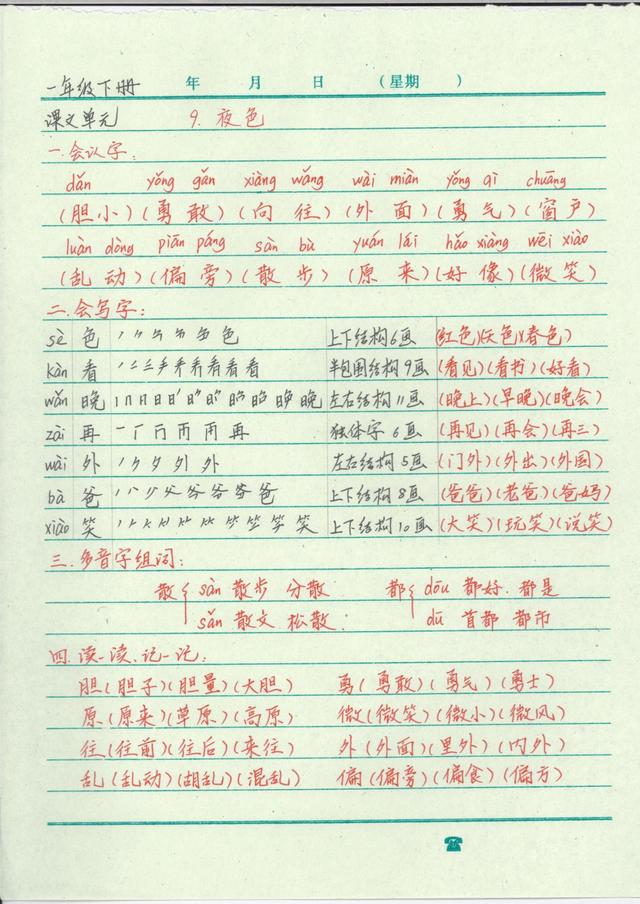 年 月 日 (星期 )
一年级下册
课文单元 9. 夜色
一.会认字:
dǎn yǒng gǎn xiàng wǎng wài miàn yǒng qì chuāng
(胆小)(勇敢)(向往)(外面)(勇气)(窗户)
luàn dòng piān páng sàn bù yuán lái hǎo xiàng wēi xiào
(乱动)(偏旁)(散步)(原来)(好像)(微笑)
二.会写字:
sè 色 色 上下结构6画 (红色)(天色)(春色)
kàn 看 看 半包围结构9画 (看见)(看书)(好看)
wǎn 晚 晚 左右结构11画 (晚上)(早晚)(晚会)
zài 再 再 独体字 6画 (再见)(再会)(再三)
wài 外 外 左右结构5画 (门外)(外出)(外国)
bà 爸 爸 上下结构8画 (爸爸)(老爸)(爸妈)
xiào 笑 笑 上下结构10画 (大笑)(玩笑)(说笑)
三.多音字组词:
散 sàn 散步 分散 都 dōu 都好.都是
sǎn 散文 松散. dū 首都 都市
四.读一读.记一记:
胆(胆子)(胆量)(大胆) 勇(勇敢)(勇气)(勇士)
原(原来)(草原)(高原) 微(微笑)(微小)(微风)
往(往前)(往后)(来往) 外(外面)(里外)(内外)
乱(乱动)(胡乱)(混乱) 偏(偏旁)(偏食)(偏方)